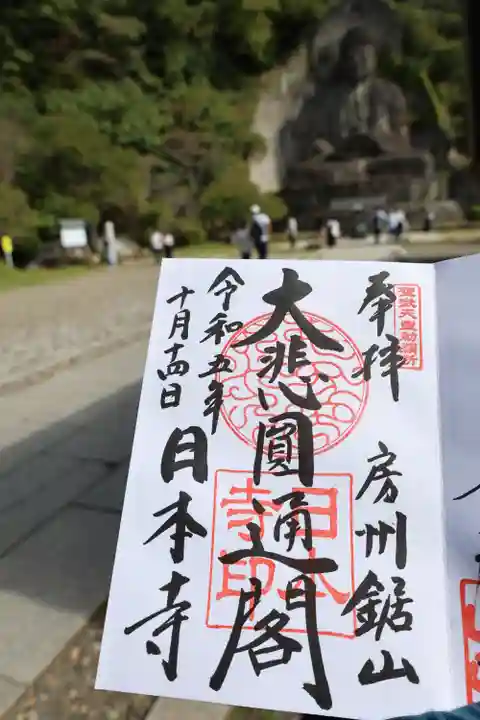 奉拝
房州鋸山
大悲圓通閣
令和五年
十月十四日
日本寺
聖武天皇勅願所
日本寺印